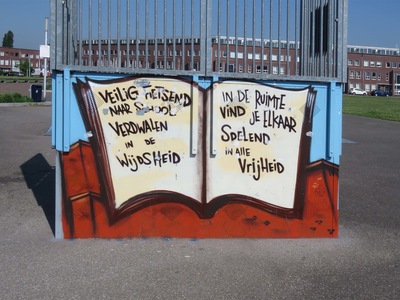 VEILIG FIETSEND
NAAR SCHOOL
VERDWALEN
IN DE
WIJDSHEID
IN DE RUIMTE
VIND JE ELKAAR
SPELEND
IN ALLE
VRIJHEID